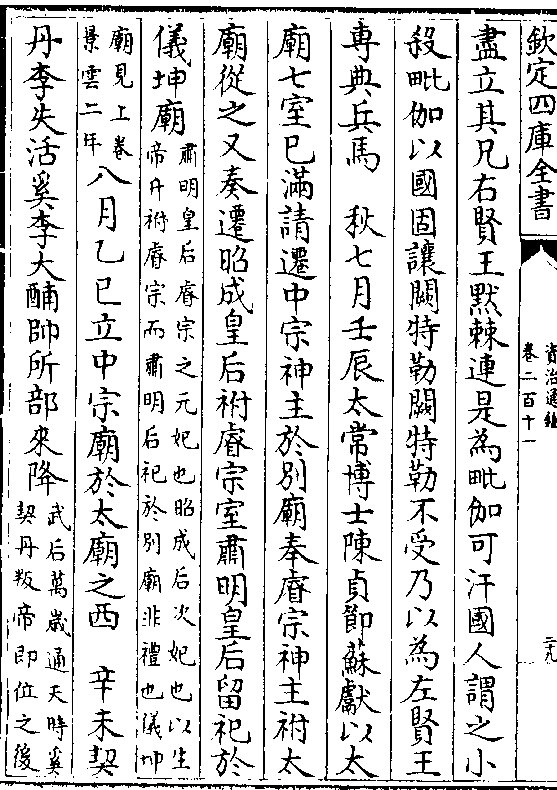 欽定四庫全書
資治通鑑
卷二百十一
二九
盡立其兄右賢王默棘連是為毗伽可汗國人謂之小
殺毗伽以國固讓闕特勒闕特勒不受乃以為左賢王
專典兵馬　秋七月壬辰太常博士陳貞節蘇獻以太
廟七室已滿請遷中宗神主於別廟奉睿宗神主祔太
廟從之又奏遷昭成皇后祔睿宗室肅明皇后留祀於
儀坤廟
肅明皇后睿宗之元妃也昭成后次妃也以生
帝升祔睿宗而肅明后祀於別廟非禮也儀坤
廟見上卷
景雲二年
八月乙巳立中宗廟於太廟之西　辛未契
丹李失活奚李大酺帥所部來降
武后萬歲通天時奚
契丹叛帝即位之後